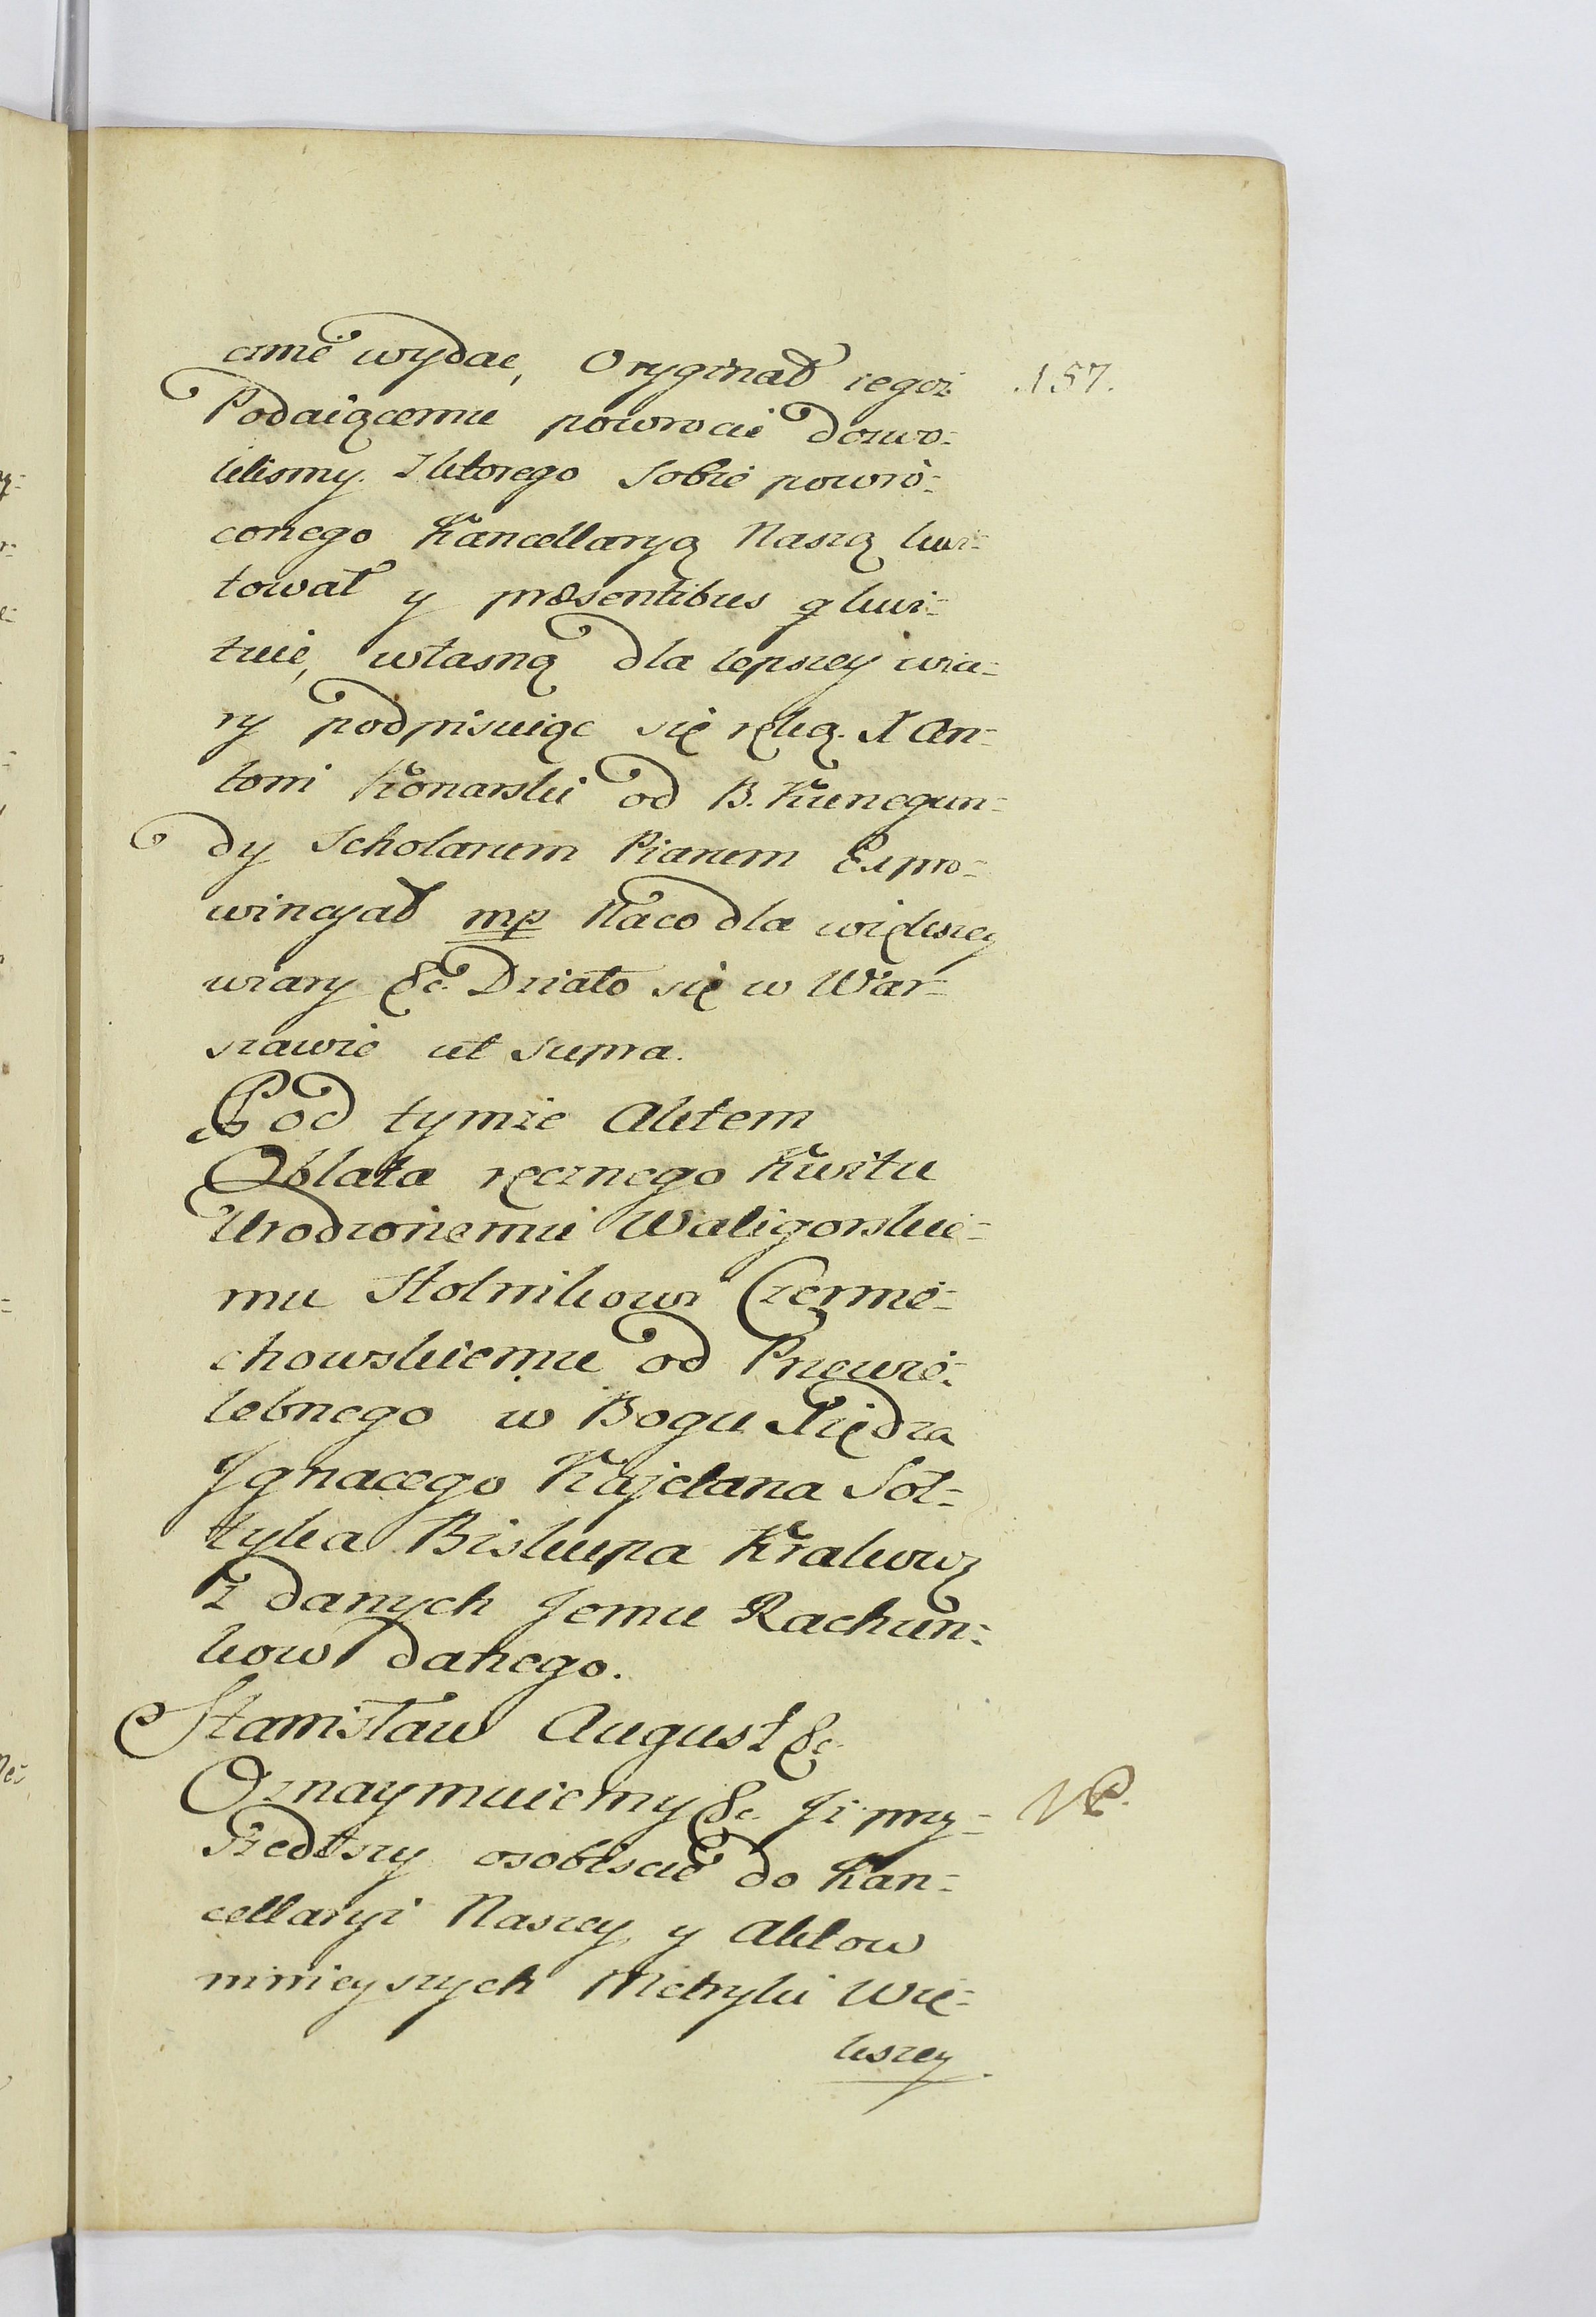 cznie wydac, Oryginał tegoż
.157.
Podaiącemu powrocić dozwo=
lilismy. Z ktorego sobie powró=
conego Kancellaryą Naszą kwi=
tował y præsentibus q kwi=
tuie, własną dla lepszey wia=
ry podpisuiąc się ręką. X An=
toni Konarski od B. Kunegun=
dy Scholarum Piarum Expro=
wincyał mp Na co dla większey
wiary &c. Działo się w War=
szawie ut supra.
Pod tymże Aktem
Oblata ręcznego Kwitu
Urodzonemu Waligorskie=
mu Stolnikowi Czernie=
chowskiemu od Przewie=
lebnego w Bogu Xiędza
Ignacego Kajetana Soł=
tyka Biskupa Krakowˢ
z danych Jemu Rachun=
kow danego.
Stanisław August &c
Oznaymuiemy &c. Iż przy=
szedłszy osobiscie do Kan=
cellaryi Naszey y Aktow
ninieyszych Metryki Wię=
kszey